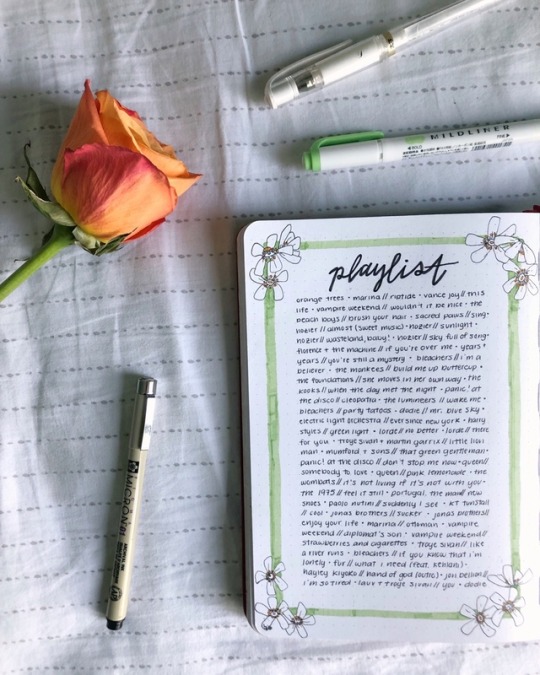 MILDLINER
playlist
orange trees • marina // riptide • vance joy // this
life • vampire weekend // wouldn't it be nice • the
beach boys // brush your hair • sacred paws // sing •
hozier // almost (sweet music) • hozier // sunlight •
hozier // wasteland, baby! • hozier // sky full of song •
florence + the machine // if you're over me • years +
years // you're still a mystery • bleachers // i'm a
believer • the monkees // build me up buttercup •
the foundations // she moves in her own way • the
kooks // when the day met the night • panic! at
the disco // cleopatra • the lumineers // wake me •
bleachers // party tattoos • dodie // mr. blue sky •
electric light orchestra // ever since new york • harry
styles // green light • lorde // no better • lorde // there
for you • troye sivan + martin garrix // little lion
man • mumford + sons // that green gentleman •
panic! at the disco // don't stop me now • queen //
somebody to love • queen // pink lemonade • the
wombats // it's not living if it's not with you •
the 1975 // feel it still • portugal. the man // new
shoes • paolo nutini // suddenly i see • KT tunstall
// cool • jonas brothers // sucker • jonas brothers //
enjoy your life • marina // ottoman • vampire
weekend // diplomat's son • vampire weekend //
strawberries and cigarettes • troye sivan // like
a river runs • bleachers // if you knew that i'm
lonely • fur // what i need (feat. kehlani) •
hayley kiyoko // hand of god (outro) • jon bellion //
i'm so tired • lauv + troye sivan // you • dodie
MICRON